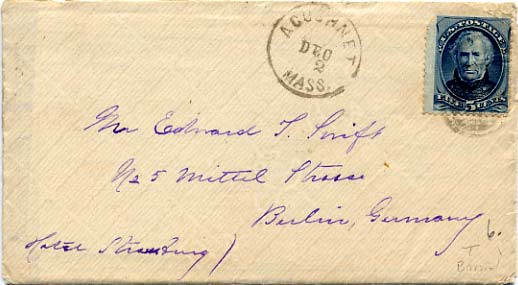 ACUSHNET
DEC
2
MASS.
U.S. POSTAGE
FIVE 5 CENTS
Mr Edward T. Swift
No 5 Mittel Strasse
Berlin, Germany
Hotel Strassburg)
6.